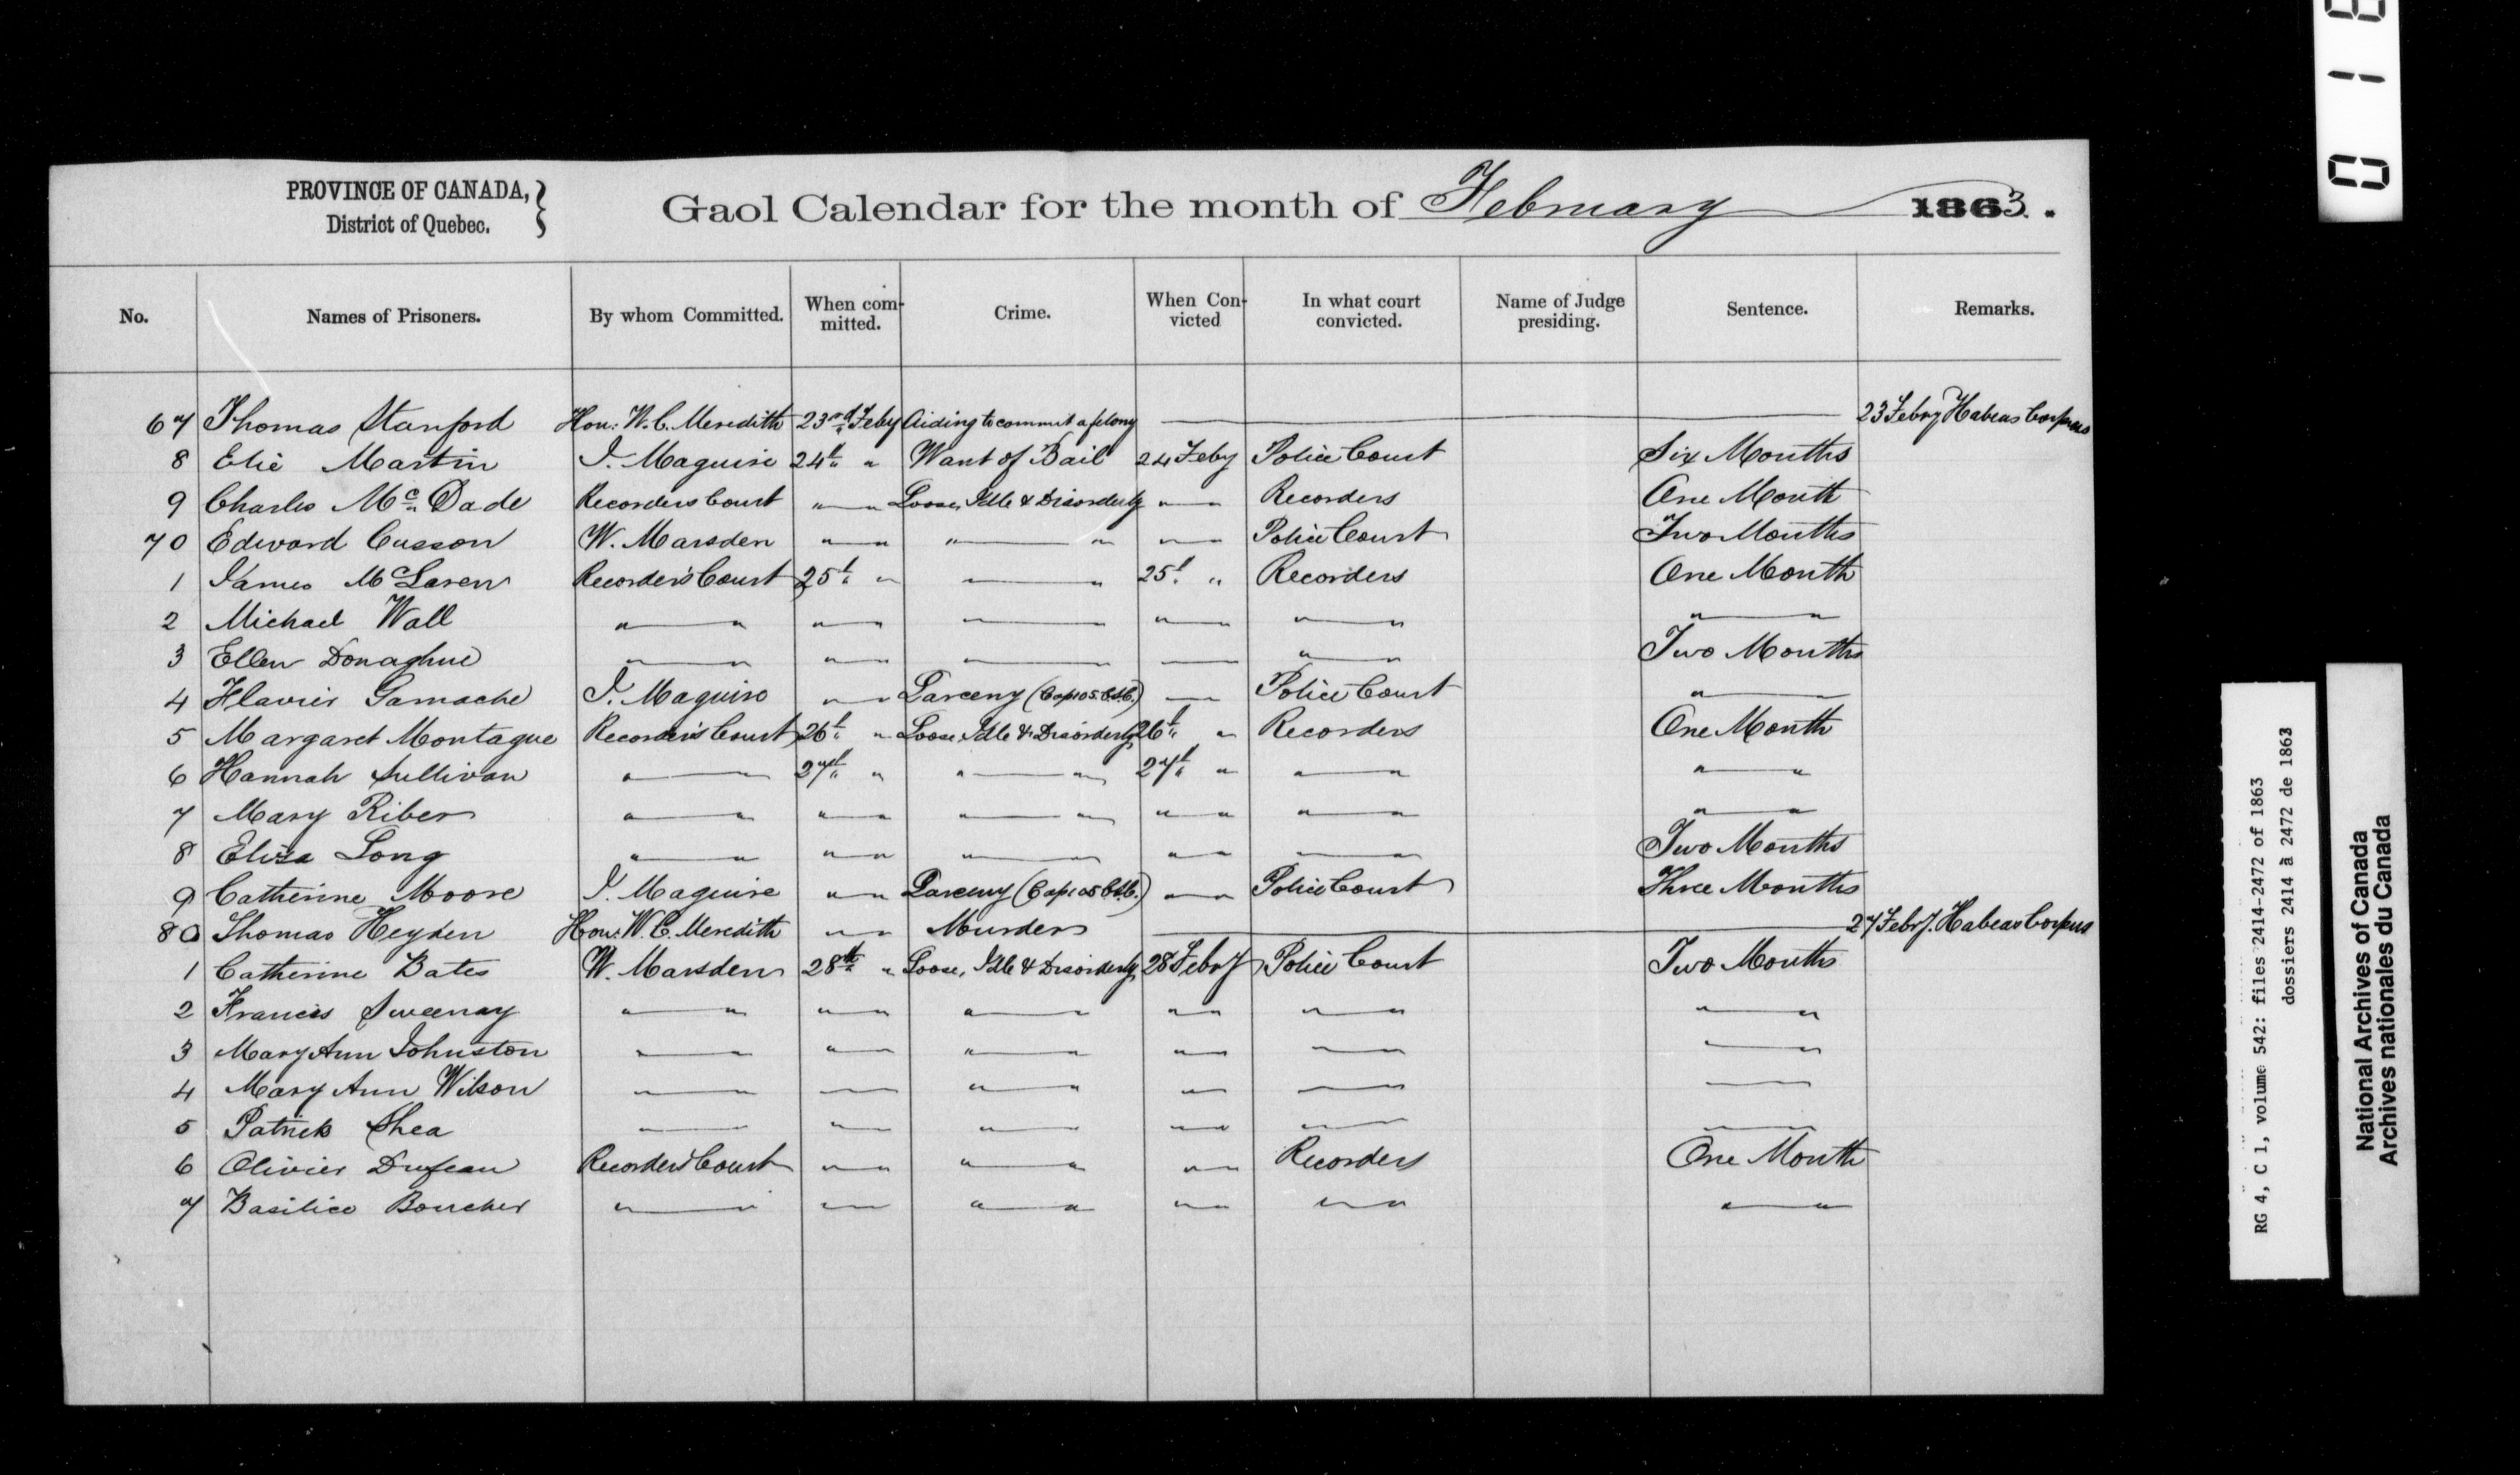 PROVINCE OF CANADA,
District of Quebec.
Gaol Calendar for the month of February 1863.
No. Names of Prisoners. By whom Committed. When committed. Crime. When Convicted In what court convicted. Name of Judge presiding. Sentence. Remarks.
67 Thomas Stanford Hon: W. C. Meredith 23rd Feby Aiding to commit a felony 23 Febry Habeas Corpus
8 Elie Martin J. Maguire 24t " Want of Bail 24 Feby Police Court Six Months
9 Charles Mc Dade Recorders Court " " Loose, Idle & Disorderly " " Recorders One Month
70 Edward Cusson W. Marsden " " " " " " Police Court Two Months
1 James McLaren Recorder's Court 25t " " " 25t " Recorders One Month
2 Michael Wall " " " " " " " " " " " "
3 Ellen Donaghue " " " " " " " " " " Two Months
4 Flavier Gamache J. Maguire " " Larceny (Cap 105. C.S.C.) " " Police Court " "
5 Margaret Montague Recorder's Court 26t " Loose Idle & Disorderly 26t " Recorders One Month
6 Hannah Sullivan " " 27t " " " 27t " " " " "
7 Mary Riber " " " " " " " " " " " "
8 Eliza Long " " " " " " " " " " Two Months
9 Catherine Moore J. Maguire " " Larceny (Cap 105 C.S.C.) " " Police Court Three Months
80 Thomas Heyden Hon: W. C. Meredith " " Murder 27 Febry. Habeas Corpus
1 Catherine Bates W. Marsden 28th " Loose, Idle & Disorderly 28 Febry Police Court Two Months
2 Francis Sweenay " " " " " " " " " " " "
3 Mary Ann Johnston " " " " " " " " " " " "
4 Mary Ann Wilson " " " " " " " " " " " "
5 Patrick Shea " " " " " " " " " " " "
6 Olivier Dufeau Recorder's Court " " " " " " Recorders One Month
7 Basilice Boucher " " " " " " " " " " " "
RG 4, C 1, volume 542: files 2414-2472 of 1863
dossiers 2414 à 2472 de 1863
National Archives of Canada
Archives nationales du Canada